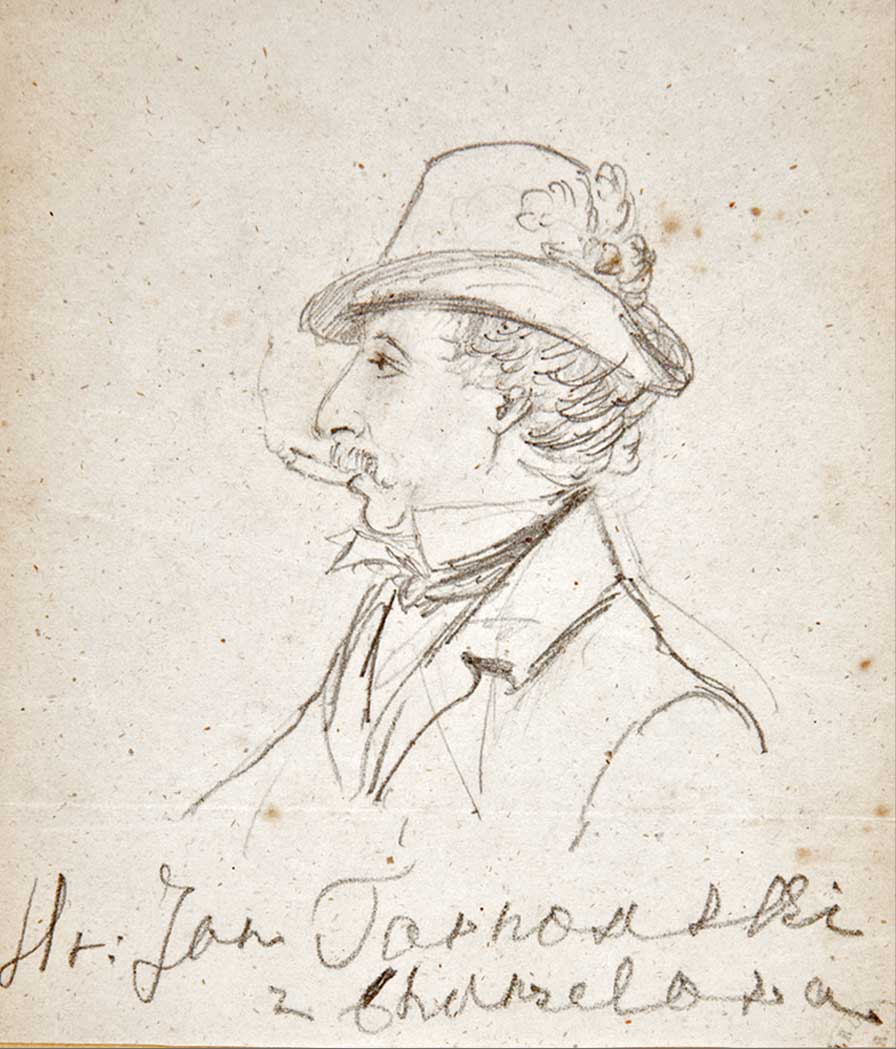 Hr: Jan Tarnowski
z Chorzelowa